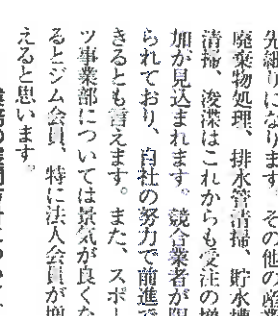 先細りになります。その他の産業
廃棄物処理、排水管清掃、貯水槽
清掃、浚渫はこれからも受注の増
加が見込まれます。競合業者が限
られており、自社の努力で前進で
きるとも言えます。また、スポー
ツ事業部については景気が良くな
るとジム会員、特に法人会員が増
えると思います。